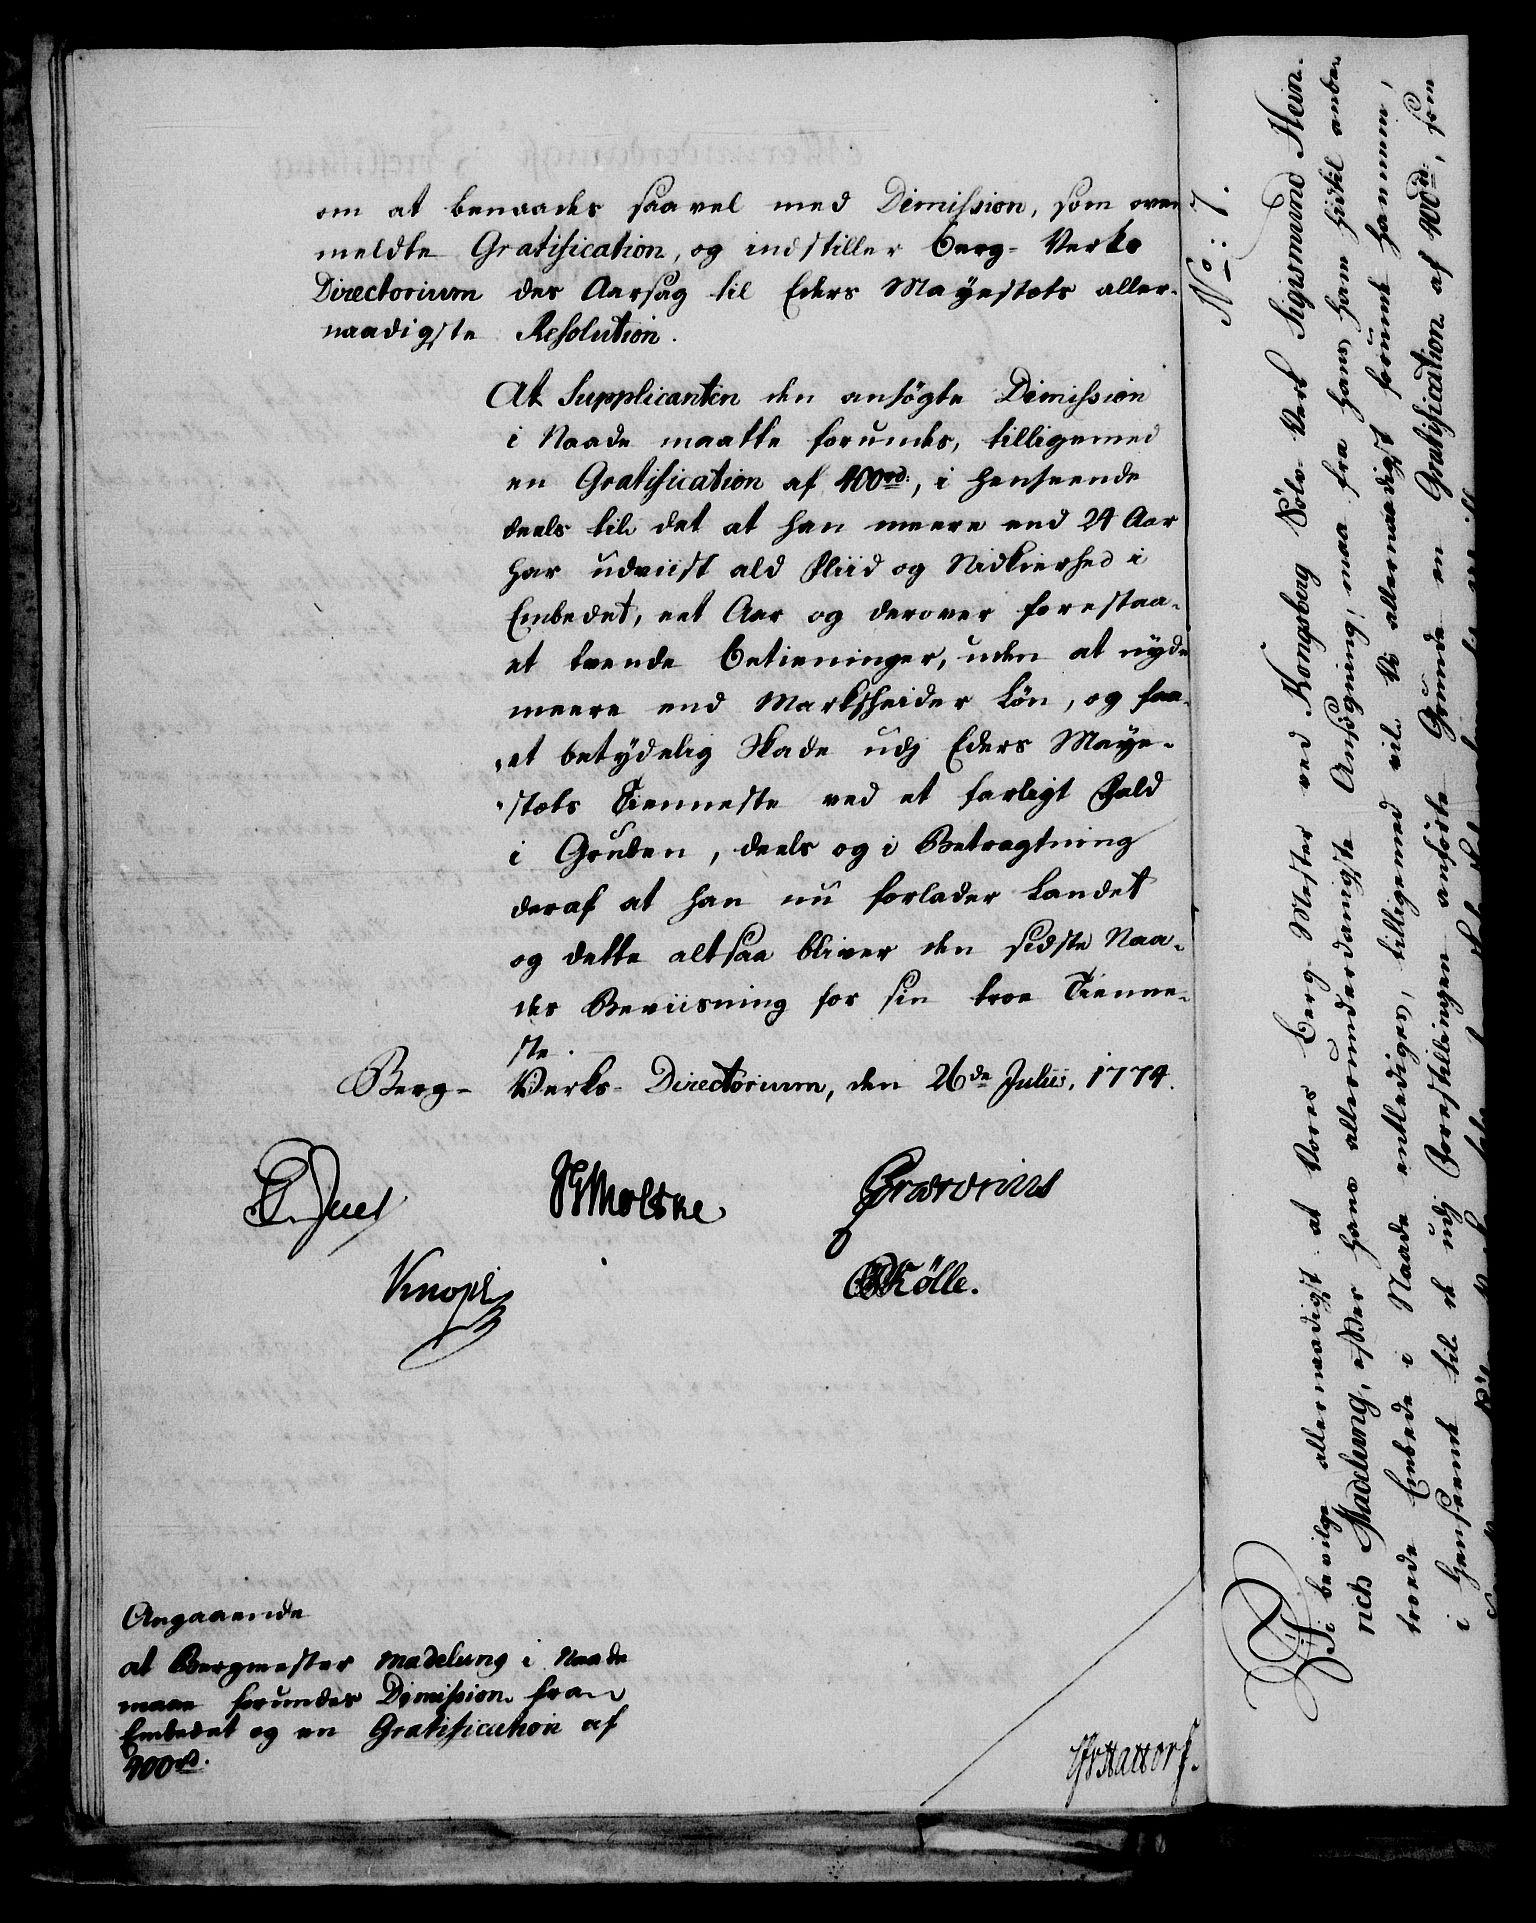 om at benaades saavel med Dimission, som oven
meldte Gratification, og indstiller Berg-Verks
Directorium des Aarsag til Eders Mayestæts aller-
naadigste Resolution.
At Supplicanten den ansögte Dimission
i Naade maatte forundes, tilligemed
en Gratification af 400rd:, i henseende
deels til det at han meere end 24 Aar
har udviist ald Fliid og Nidkierhed i
Embedet, eet Aar og derover forestaa-
et tvende Betieninger, uden at nyde
meere end Markscheider Løn, og faa-
et betydelig Skade udj Eders Maye-
stæts Tienneste ved et farligt Fald
i Gruben, deels og i Betragtning
deraf at han nu forlader Landet
og dette altsaa bliver den sidste Naa-
des Beviisning for sin troe Tienne-
ste.
Berg- Verks- Directorium, den 26de Julii, 1774.
Juel
Moltke
Prætorius
Knoph
Kølle.
Angaaende
at Bergmester Madelung i Naade
maae forundes Dimission fra
Embedet og en Gratification af
400rd.
Hattorf.
No: 7.
Vi bevilge allernaadigst at Vores Berg-Mester ved Kongsberg Sølv-Verk Sigismund Hein-
rich Madelung, efter hans allerunderdanigste Ansøgning, maa fra hans, ham hidtil anbe-
troede Embede i Naade entlediges, tilligemed vil Vi allernaadigst forunt hannem,
i henseende til de udj Forestillingen anførte Grunde en Gratification af 400rd:, som